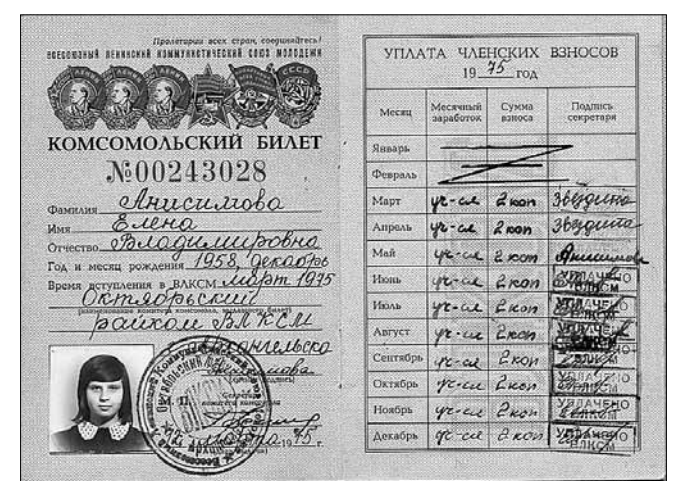 Пролетарии всех стран, соединяйтесь!
ВСЕСОЮЗНЫЙ ЛЕНИНСКИЙ КОММУНИСТИЧЕСКИЙ СОЮЗ МОЛОДЕЖИ
КОМСОМОЛЬСКИЙ БИЛЕТ
№00243028
Фамилия Анисимова
Имя Елена
Отчество Владимировна
Год и месяц рождения 1958, декабрь
Время вступления в ВЛКСМ март 1975
Октябрьский
(наименование комитета комсомола, выдавшего билет)
райком ВЛКСМ
Архангельска
Анисимова
(личная подпись)
Секретарь
комитета комсомола
12 марта 1975 г.
УПЛАТА ЧЛЕНСКИХ ВЗНОСОВ
1975 год
Месяц Месячный заработок Сумма взноса Подпись секретаря
Январь
Февраль
Март уч-ся 2 коп Звездина
Апрель уч-ся 2 коп Звездина
Май уч-ся 2 коп Анисимова
Июнь уч-ся 2 коп УПЛАЧЕНО ВЛКСМ
Июль уч-ся 2 коп УПЛАЧЕНО ВЛКСМ
Август уч-ся 2 коп УПЛАЧЕНО ВЛКСМ
Сентябрь уч-ся 2 коп УПЛАЧЕНО ВЛКСМ
Октябрь уч-ся 2 коп УПЛАЧЕНО ВЛКСМ
Ноябрь уч-ся 2 коп УПЛАЧЕНО ВЛКСМ
Декабрь уч-ся 2 коп УПЛАЧЕНО ВЛКСМ